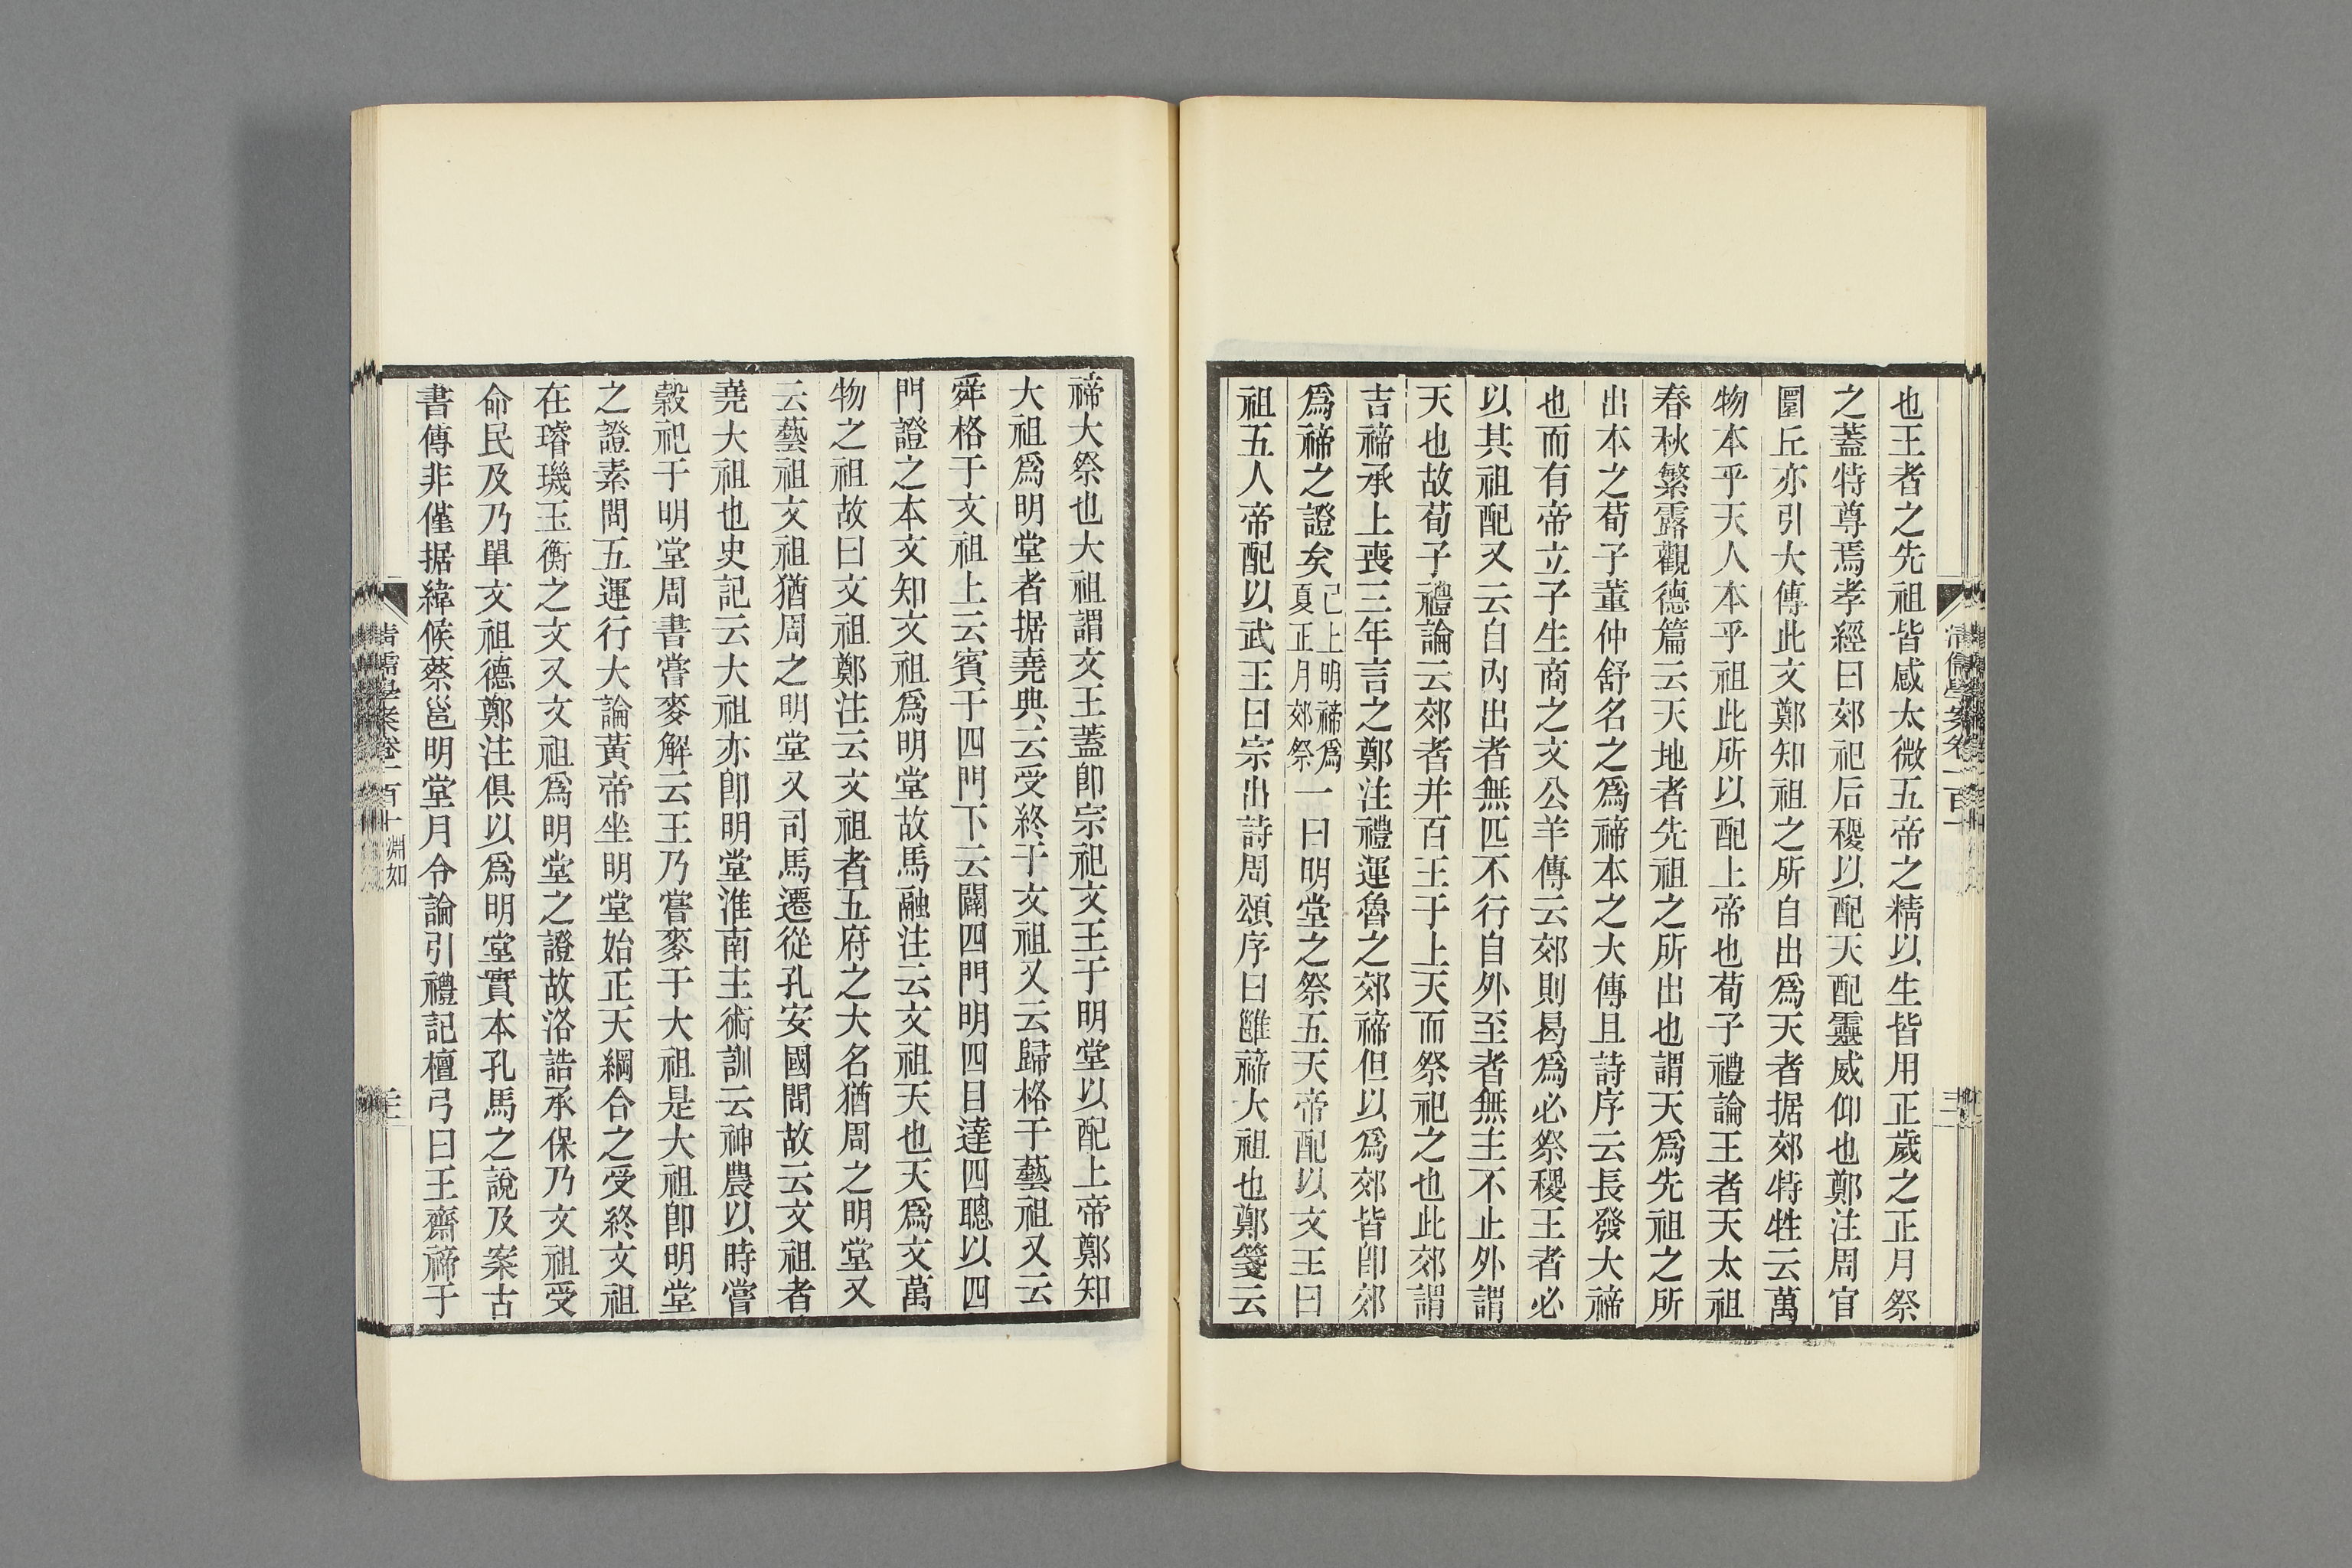 也王者之先祖皆感太微五帝之精以生皆用正歲之正月祭
之蓋特尊焉孝經曰郊祀后稷以配天配靈威仰也鄭注周官
圜丘亦引大傳此文鄭知祖之所自出爲天者据郊特牲云萬
物本乎天人本乎祖此所以配上帝也荀子禮論王者天太祖
春秋繁露觀德篇云天地者先祖之所出也謂天爲先祖之所
出本之荀子董仲舒名之爲禘本之大傳且詩序云長發大禘
也而有帝立子生商之文公羊傳云郊則曷爲必祭稷王者必
以其祖配又云自內出者無匹不行自外至者無主不止外謂
天也故荀子禮論云郊者幷百王于上天而祭祀之也此郊謂
吉禘承上喪三年言之鄭注禮運魯之郊禘但以爲郊皆卽郊
爲禘之證矣已上明禘爲夏正月郊祭一曰明堂之祭五天帝配以文王曰
祖五人帝配以武王曰宗出詩周頌序曰雝禘大祖也鄭箋云
禘大祭也大祖謂文王蓋卽宗祀文王于明堂以配上帝鄭知
大祖爲明堂者据堯典云受終于文祖又云歸格于藝祖又云
舜格于文祖上云賓于四門下云闢四門明四目達四聰以四
門證之本文知文祖爲明堂故馬融注云文祖天也天爲文萬
物之祖故曰文祖鄭注云文祖者五府之大名猶周之明堂又
云藝祖文祖猶周之明堂又司馬遷從孔安國問故云文祖者
堯大祖也史記云大祖亦卽明堂淮南主術訓云神農以時嘗
穀祀于明堂周書嘗麥解云王乃嘗麥于大祖是大祖卽明堂
之證素問五運行大論黃帝坐明堂始正天綱合之受終文祖
在璿璣玉衡之文又文祖爲明堂之證故洛誥承保乃文祖受
命民及乃單文祖德鄭注俱以爲明堂實本孔馬之說及案古
書傳非僅据緯候蔡邕明堂月令論引禮記檀弓曰王齋禘于
淵如